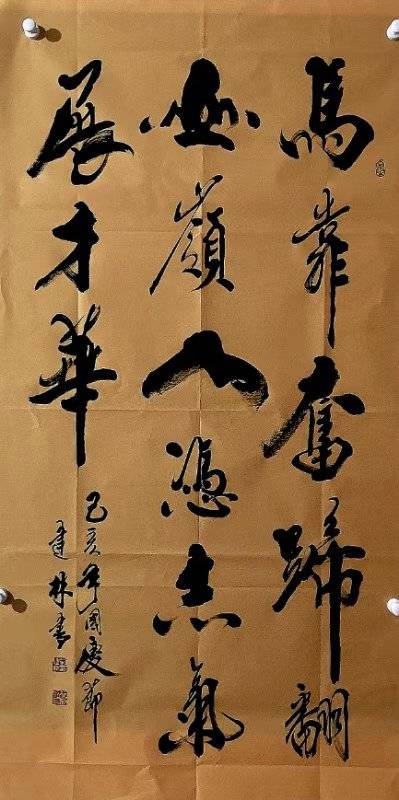 馬靠奮蹄翻
山嶺人憑志氣
展才華
己亥年國慶節
建林書